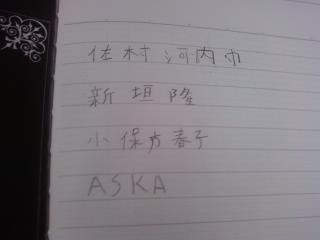 佐村河内巾
新垣隆
小保方春子
ASKA